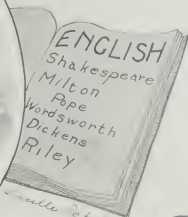 ENGLISH
Shakespeare
Milton
Pope
Wordsworth
Dickens
Riley